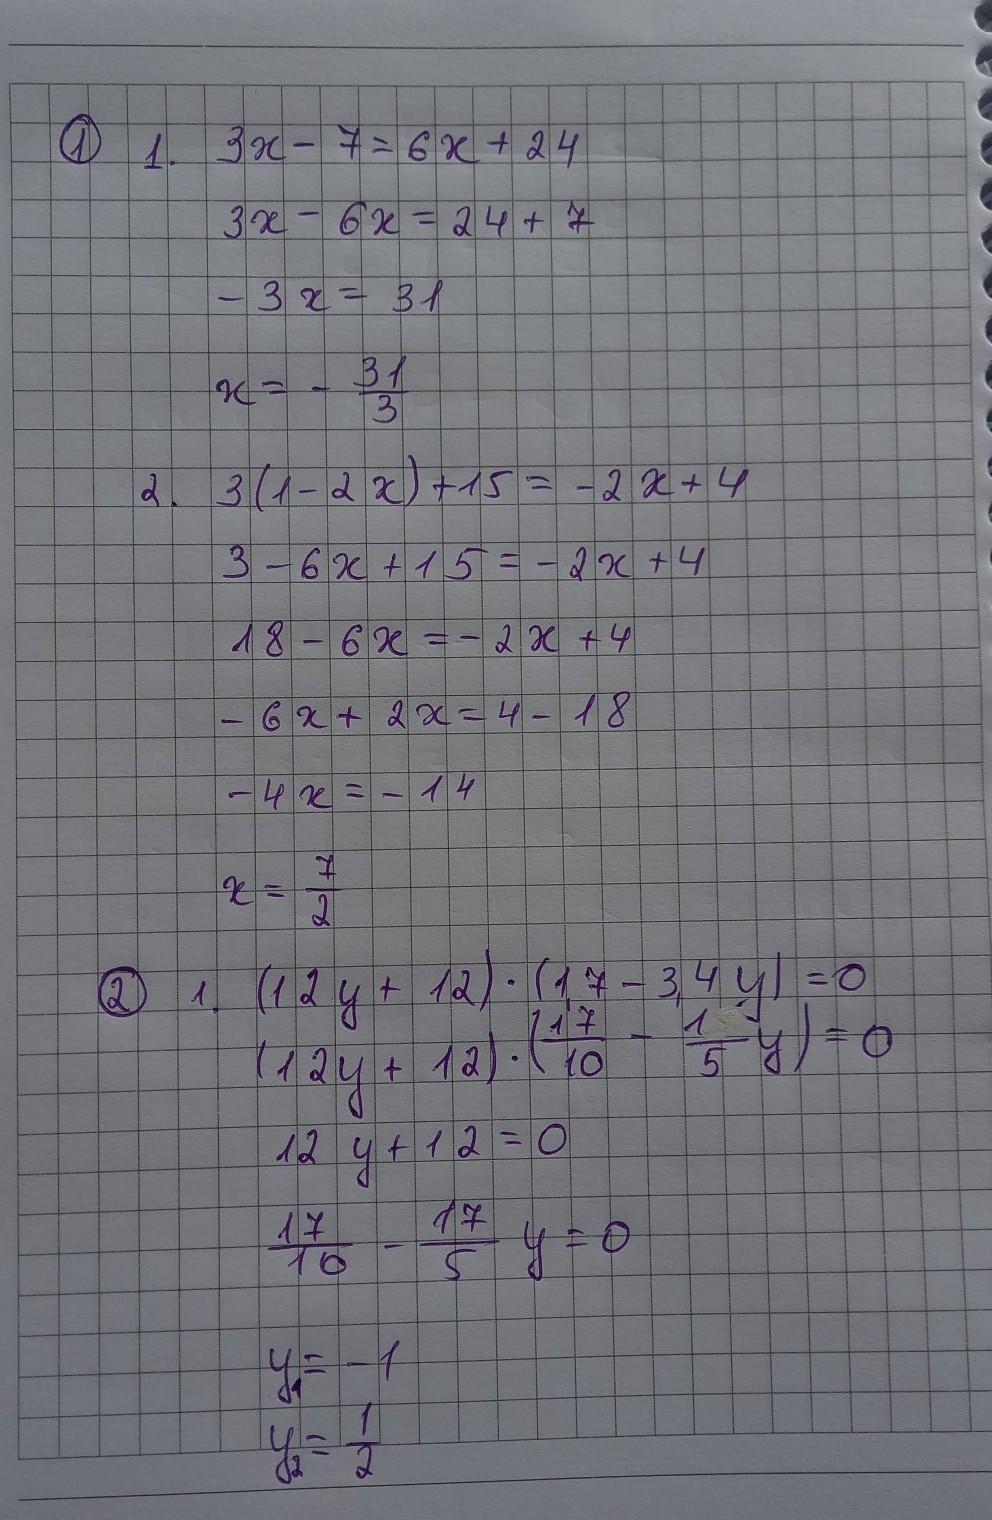 ① 1. 3x - 7 = 6x + 24
3x - 6x = 24 + 7
- 3x = 31
x = - 31/3
2. 3(1 - 2x) + 15 = -2x + 4
3 - 6x + 15 = - 2x + 4
18 - 6x = - 2x + 4
- 6x + 2x = 4 - 18
- 4x = - 14
x = 7/2
② 1. (12y + 12) · (1,7 - 3,4y) = 0
(12y + 12) · (17/10 - 1/5 y) = 0
12y + 12 = 0
17/10 - 17/5 y = 0
y₁ = - 1
y₂ = 1/2